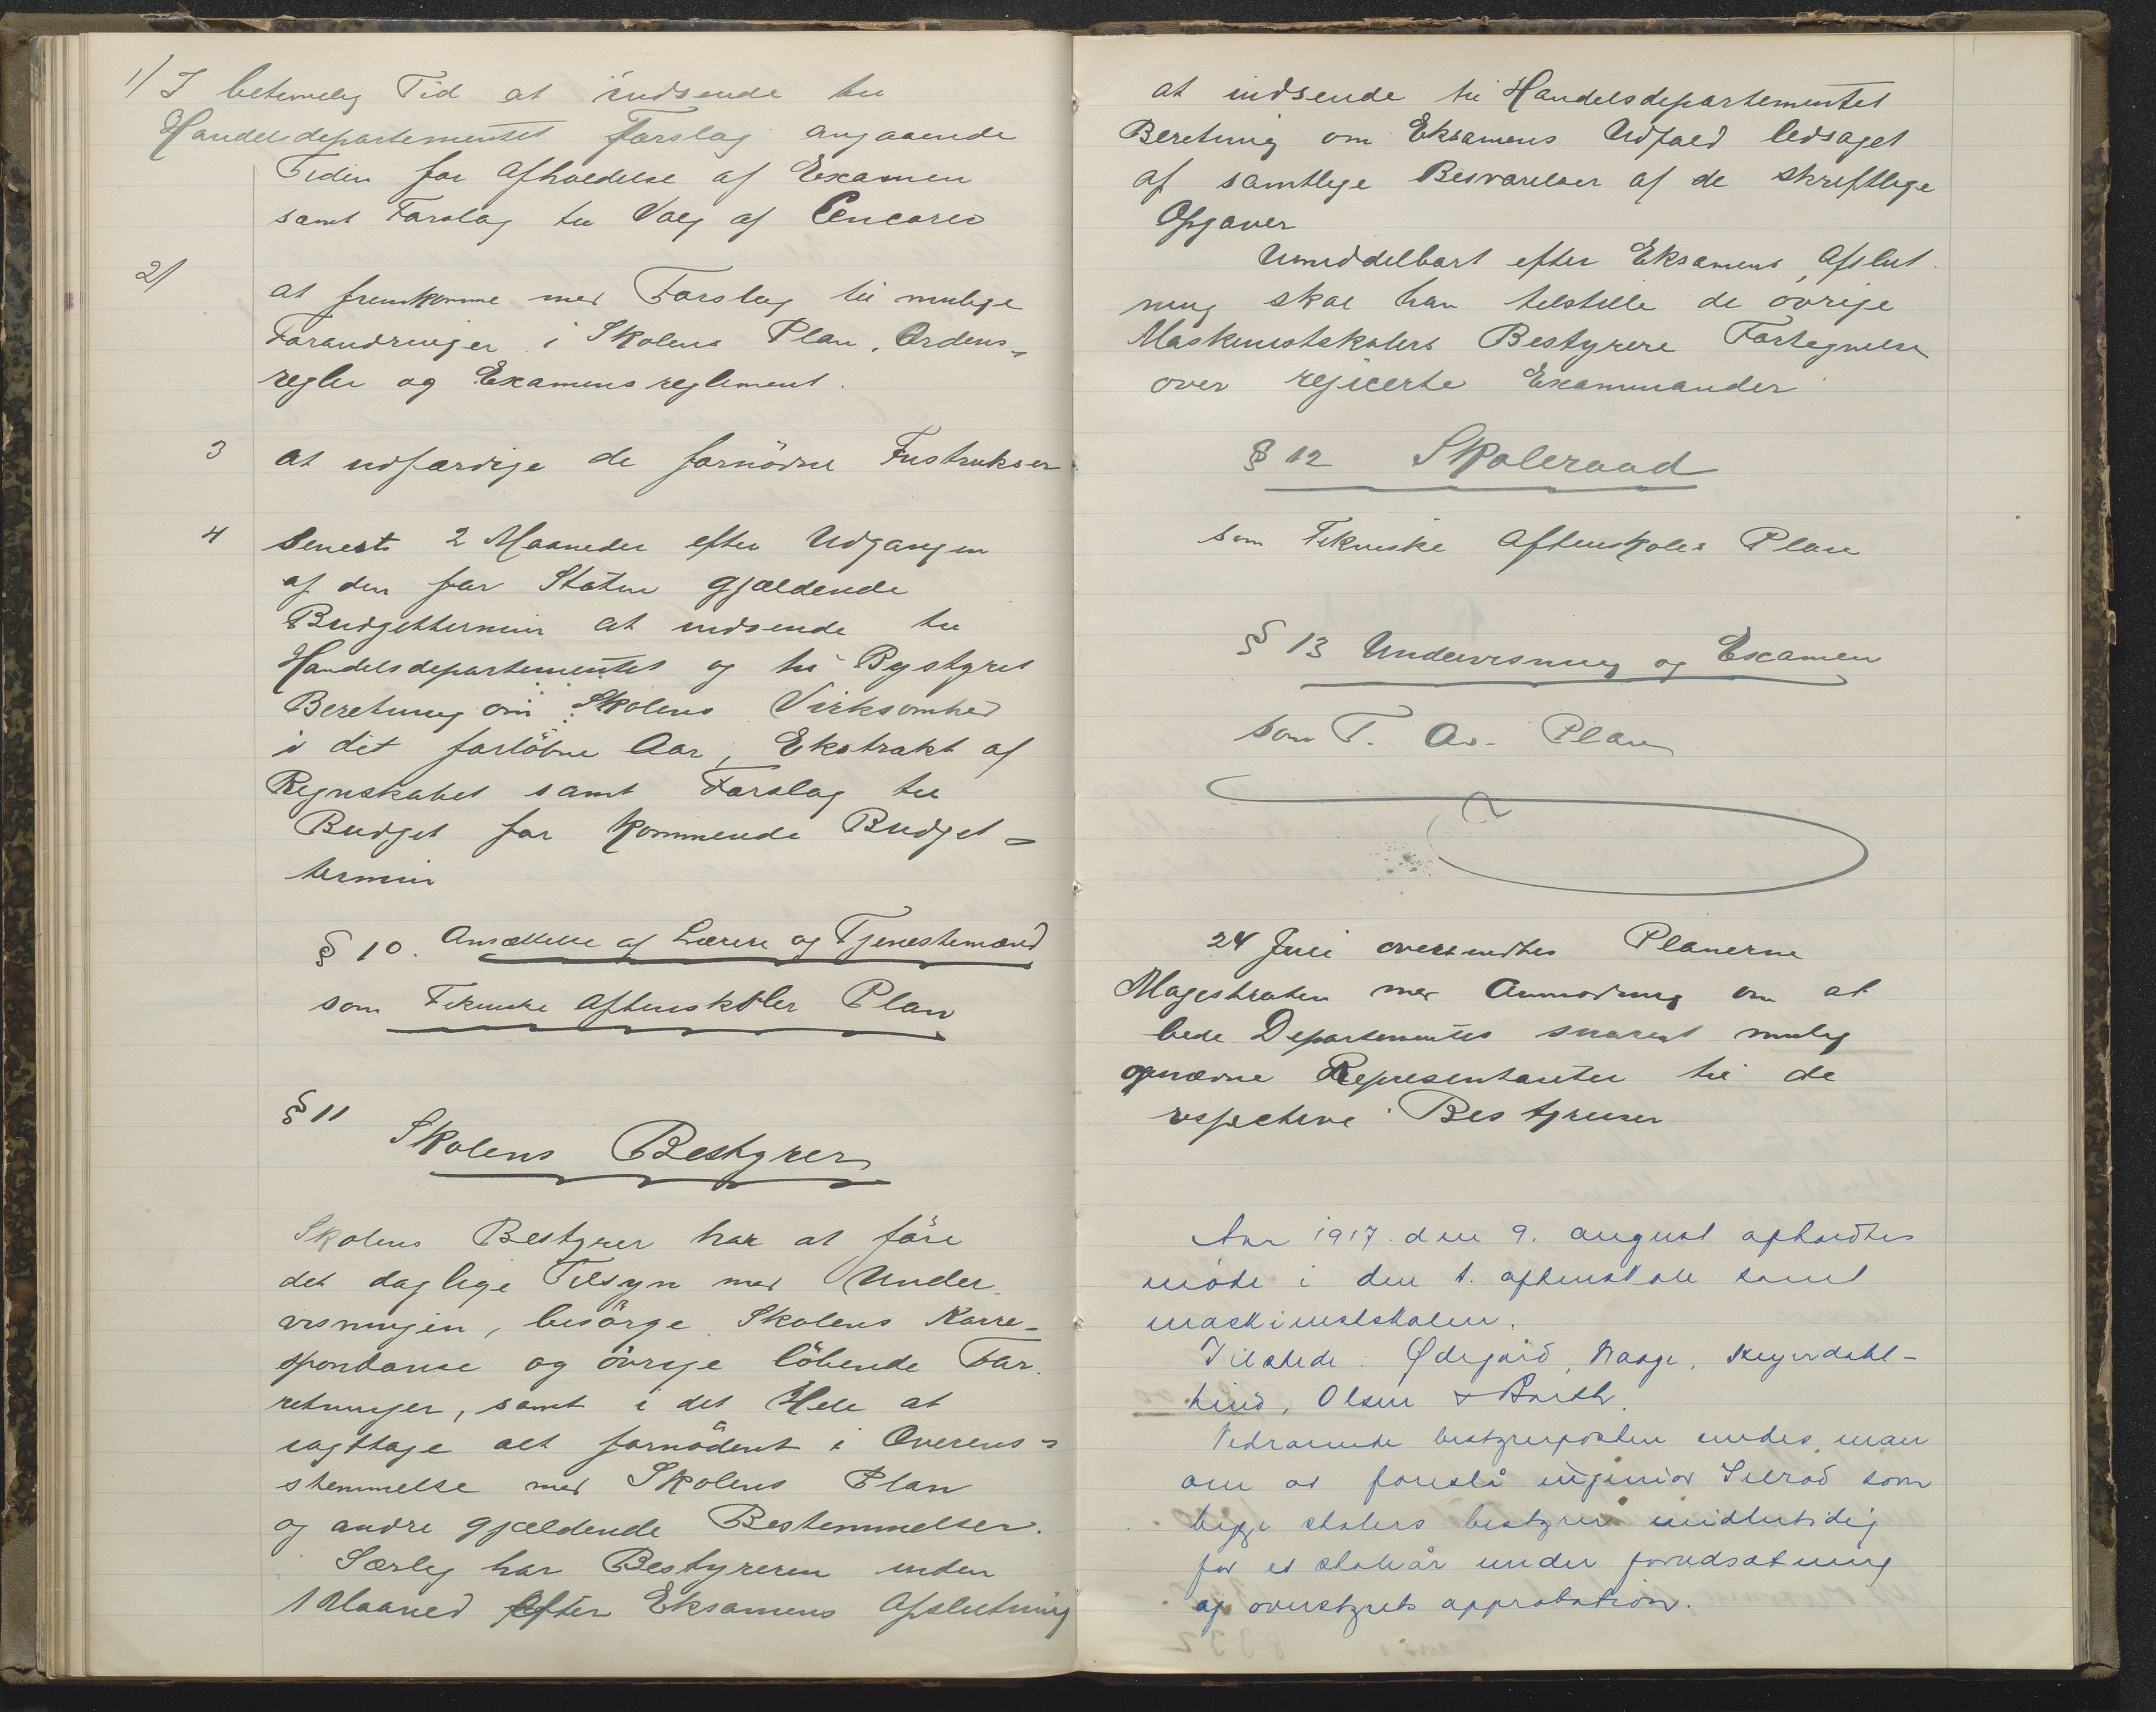 1/ I betimelig Tid at indsende til
Handelsdepartementet Forslag angaaende
Tiden for Afholdelse af Examen
samt Forslag til Valg af Cencorer
2/
at fremkomme med Forslag til mulige
Forandringer i Skolens Plan, Ordens=
regler og Examensreglement.
3 at udfærdige de fornödne Instrukser
4 Senest 2 Maaneder efter Udgangen
af den for Staten gjældende
Budgettermin at indsende til
Handelsdepartementet og til Bystyret
Beretning om Skolens Virksomhed
i det forlöbne Aar, Ekstrakt af
Regnskabet samt Forslag til
Budget for kommende Budget=
termin
§ 10. Ansættelse af Lærere og Tjenestemænd
som Tekniske Aftenskoler Plan
§ 11
Skolens Bestyrer
Skolens Bestyrer har at före
det daglige Tilsyn med Under-
visningen, besörge Skolens Korre-
spondanse og övrige löbende For-
retninger, samt i det Hele at
iagttage alt fornödent i Overens=
stemmelse med Skolens Plan
og andre gjældende Bestemmelser.
Særlig har Bestyreren inden
1 Maaned efter Eksamens Afslutning
at indsende til Handelsdepartementet
Beretning om Eksamens Udfald ledsaget
af samtlige Besvarelser af de skriftlige
Opgaver
Umiddelbart efter Eksamens Afslut-
ning skal han tilstille de övrige
Maskinistskolers Bestyrere Fortegnelse
over rejicerte Examinander
§ 12 Skoleraad
som Tekniske Aftenskoles Plan
§ 13 Undervisning og Examen
som T. A. Plan
24 Juli oversendtes Planerne
Magistraten med Anmodning om at
bede Departementet snarest mulig
opnævne Repræsentanter til de
respektive Bestyrelser
Aar 1917 den 9. august apholdtes
möte i den t. aftenskole samt
maskinistskolen.
Tilstede: Ødegård, Waage, Skeyerdahl-
Lind, Olsen & Barth.
Vedrørende bestyrerposten enedes man
om at foreslå ingeniør Selrod som
begge skolers bestyrer midlertidig
for et skoleår under forudsætning
af overstyrets approbation.